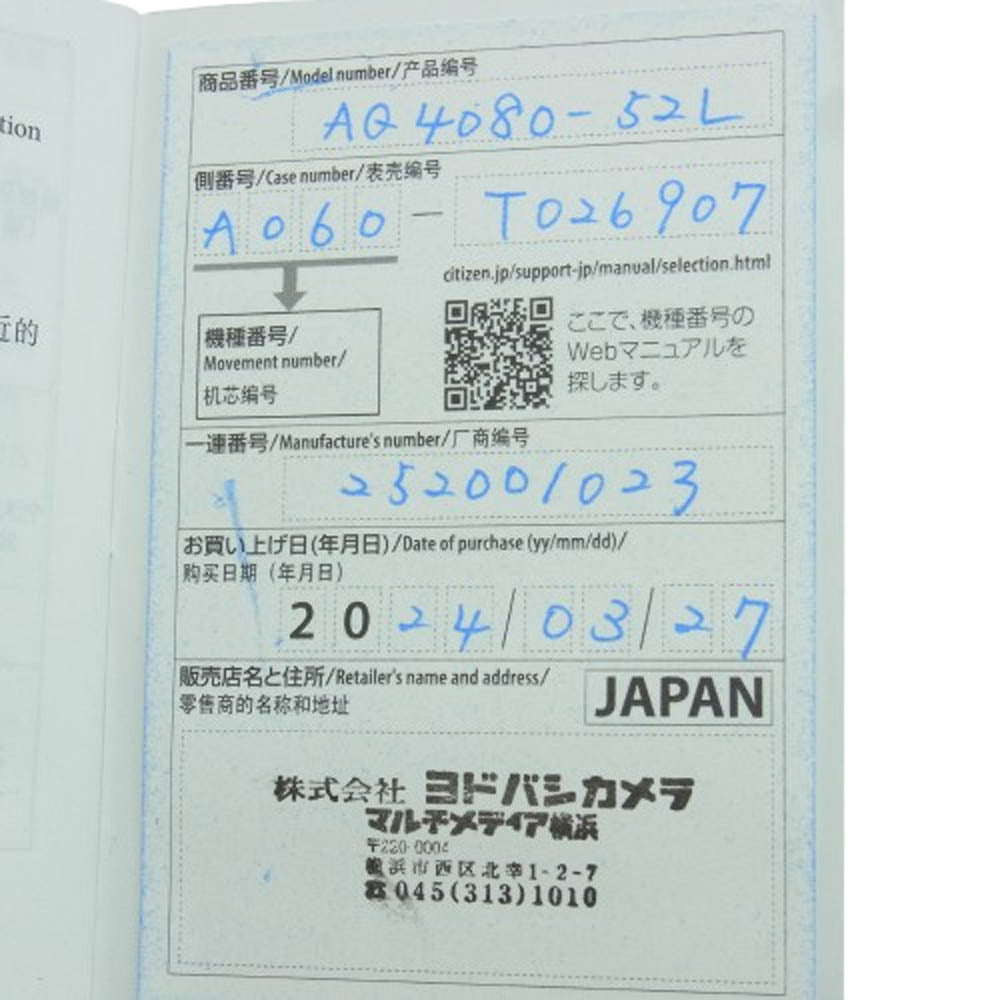 tion
近的
商品番号/Model number/产品编号
AQ4080-52L
側番号/Case number/表壳编号
A060 - T026907
citizen.jp/support-jp/manual/selection.html
機種番号/
Movement number/
机芯编号
ここで、機種番号の
Webマニュアルを
探します。
一連番号/Manufacture's number/厂商编号
252001023
お買い上げ日(年月日)/Date of purchase (yy/mm/dd)/
购买日期（年月日）
2024/03/27
販売店名と住所/Retailer's name and address/
零售商的名称和地址
JAPAN
株式会社 ヨドバシカメラ
マルチメディア横浜
〒220-0004
横浜市西区北幸1-2-7
☎045(313)1010